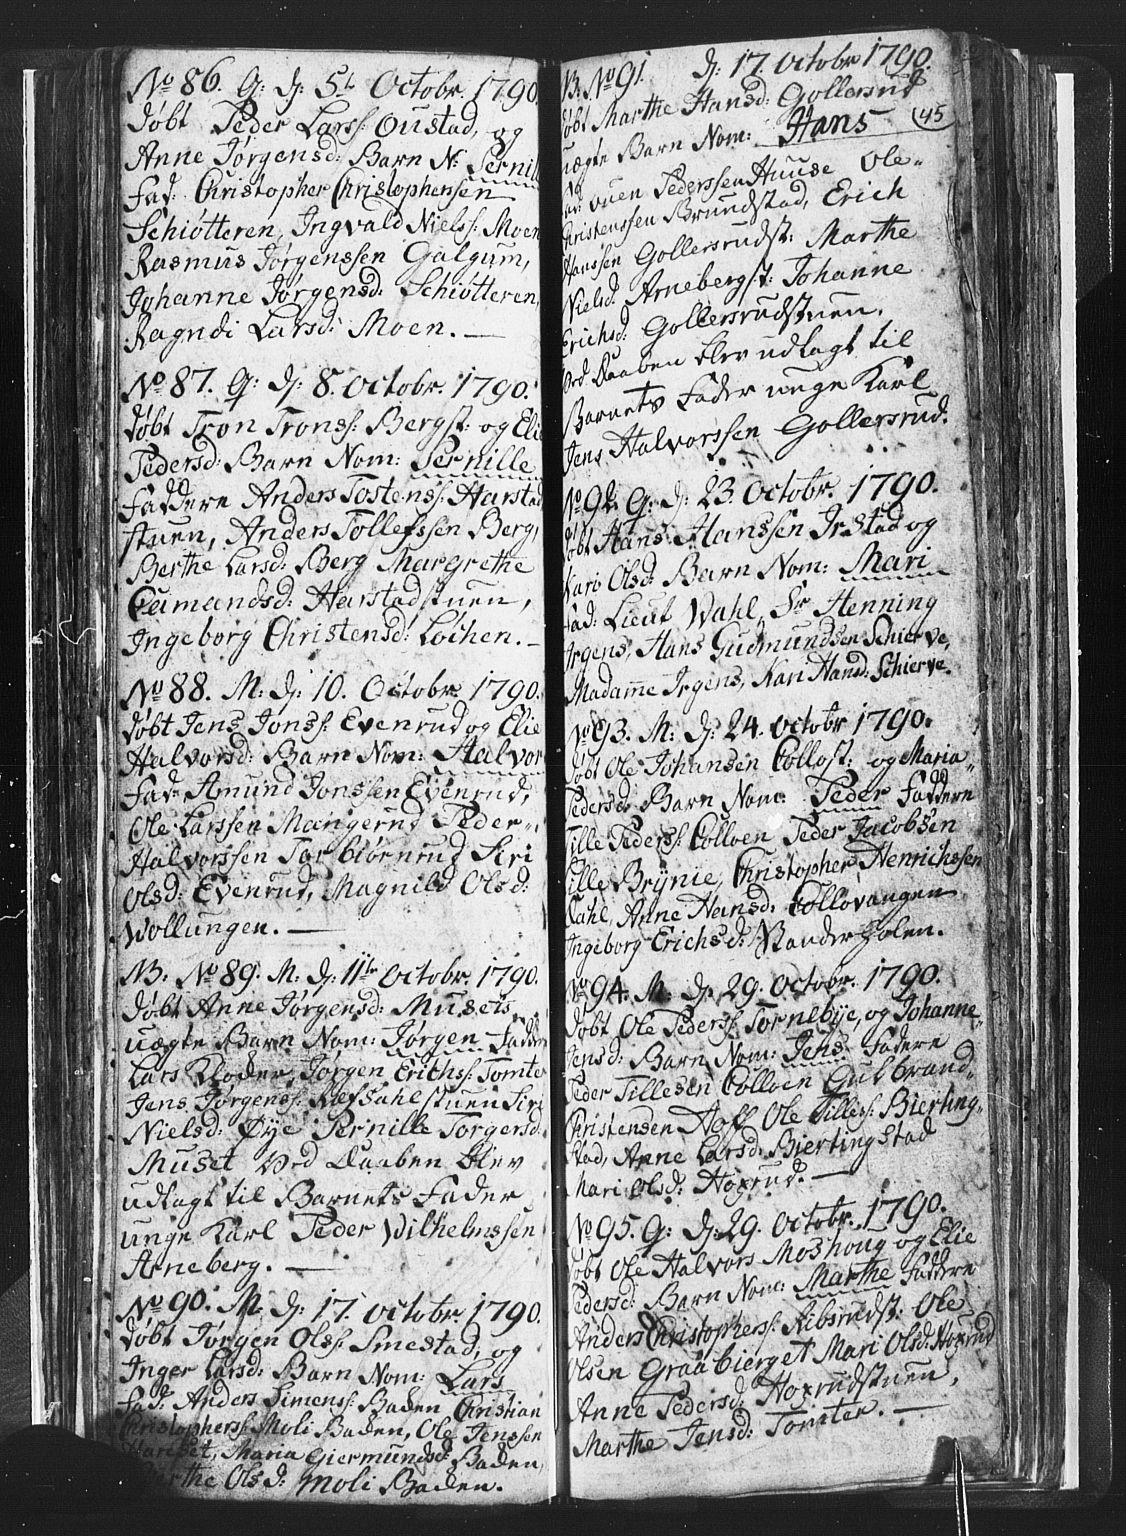 No 86. G: d: 5t Octobr. 1790.
døbt Peder Larss: Oustad, og
Anne Jørgensd: Barn N: Pernille
Fad: Christopher Christophersen
Schiøtteren, Ingvald Niels: Moen
Rasmus Jørgenssen Galgum,
Johanne Jørgensd: Schiøtteren,
Ragndi Larsd: Moen. —
No 87. G: d: 8. Octobr. 1790.
døbt Tron Trons: Bergst: og Elie
Pedersd: Barn Nom: Pernille
Faddere Anders Tostens: Harstad
stuen, Anders Tollefssen Berg,
Berthe Larsd: Berg Margrethe
Eamandsd: Harstadstuen,
Ingeborg Christensd: Lochen. —
No 88. M: d: 10. Octobr. 1790.
døbt Jens Jons: Evenrud og Elie
Halvorsd: Barn Nom: Halvor
Fad: Amund Jonssen Evenrud,
Ole Larssen Mangerud Peder
Halvorssen Torbiørnrud Siri
Olsd: Evenrud, Magnild Olsd:
Wollungen. —
NB: No 89. M: d: 11te Octobr. 1790.
døbt Anne Jørgensd: Musets
uægte Barn Nom: Jørgen Faddere
Lars Kloder, Jørgen Erichs: Tomter
Jens Jørgens: Refsahlstuen Siri
Nielsd: Øye Pernille Torgersd:
Muset Ved Daaben blev
udlagt til Barnets Fader
unge Karl Peder Wilhelmssen
Arneberg. —
No 90. M. d: 17. Octobr. 1790.
døbt Jørgen Ols: Smestad, og
Inger Larsd: Barn Nom: Lars
Fad: Anders Simens: Baden Christian
Christophers: Moli Baden, Ole Jenssen
Maria Giermundsd: Baden,
Olsd: Moli Baden.
NB: No 91. d: 17 Octobr 1790.
døbt Marthe Hansd: Gollersrud
uægte Barn Nom: Hans 45
Fad: ouen Pederssen Huuse Ole
Christenssen Bruudstad, Erich
Hanssen Gollersrudst: Marthe
Nielsd: Arnebergst: Johanne
Erichsd: Gollersrudstuen.
Ved Daaben blev udlagt til
Barnets Fader unge Karl
Jens Halvorssen Gollersrud.
No 92. G: d: 23. Octobr. 1790.
døbt Hans Hanssen Irstad og
Kari Olsd: Barn Nom: Mari
Fad: Lieut Wahl, Sr Henning
Irgens, Hans Gudmundsen Schierve,
Madame Irgens, Kari Hansd: Schierve.
No 93. M: d: 24. Octobr 1790.
døbt Ole Johansen Collost: og Maria
Pedersd: Barn Nom: Peder Faddere
Tille Peders: Colloen Peder Jacobsen
Lille Brÿnie, Christopher Henrichssen
Dahl, Anne Hansd: Collovangen
Ingeborg Erichsd: Vander holen.
No 94. M: d: 29. Octobr. 1790.
døbt Ole Peders: Tornebye, og Johanne
Jensd: Barn Nom: Jens Faddere
Peder Tillesen Colloen Gulbrand
Christensen Hoff Ole Tilles: Bierting
stad, Anne Larsd: Biertingstad
Mari Olsd: Hoxrud. —
No 95. G: d: 29. Octobr. 1790.
døbt Ole Halvors Moshoug og Elie
Pedersd: Barn Nom: Marthe Faddere
Anders Christophers: Ribsrudst: Ole
Olsen Graabierget Mari Olsd: Hoxrud
Anne Pedersd: Hoxrudstuen,
Marthe Jensd: Tomter. —